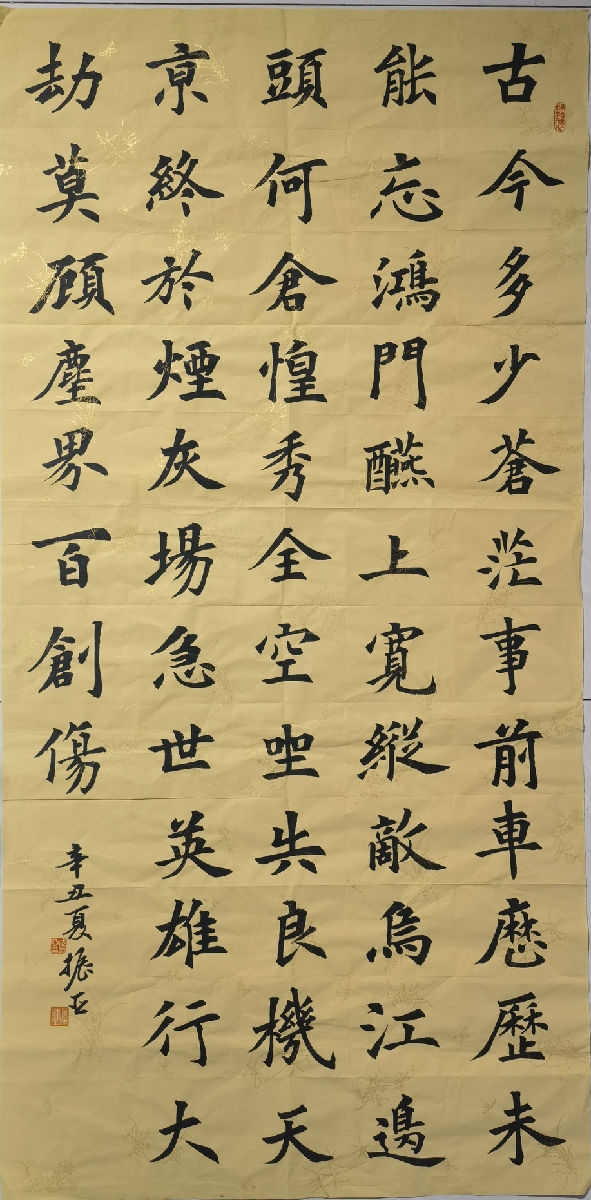 古今多少蒼茫事前車歷歷未
能忘鴻門醼上寬縱敵烏江邊
頭何倉惶秀全空坐失良機天
京終於煙灰場急世英雄行大
劫莫顧塵界百創傷
辛丑夏振亞